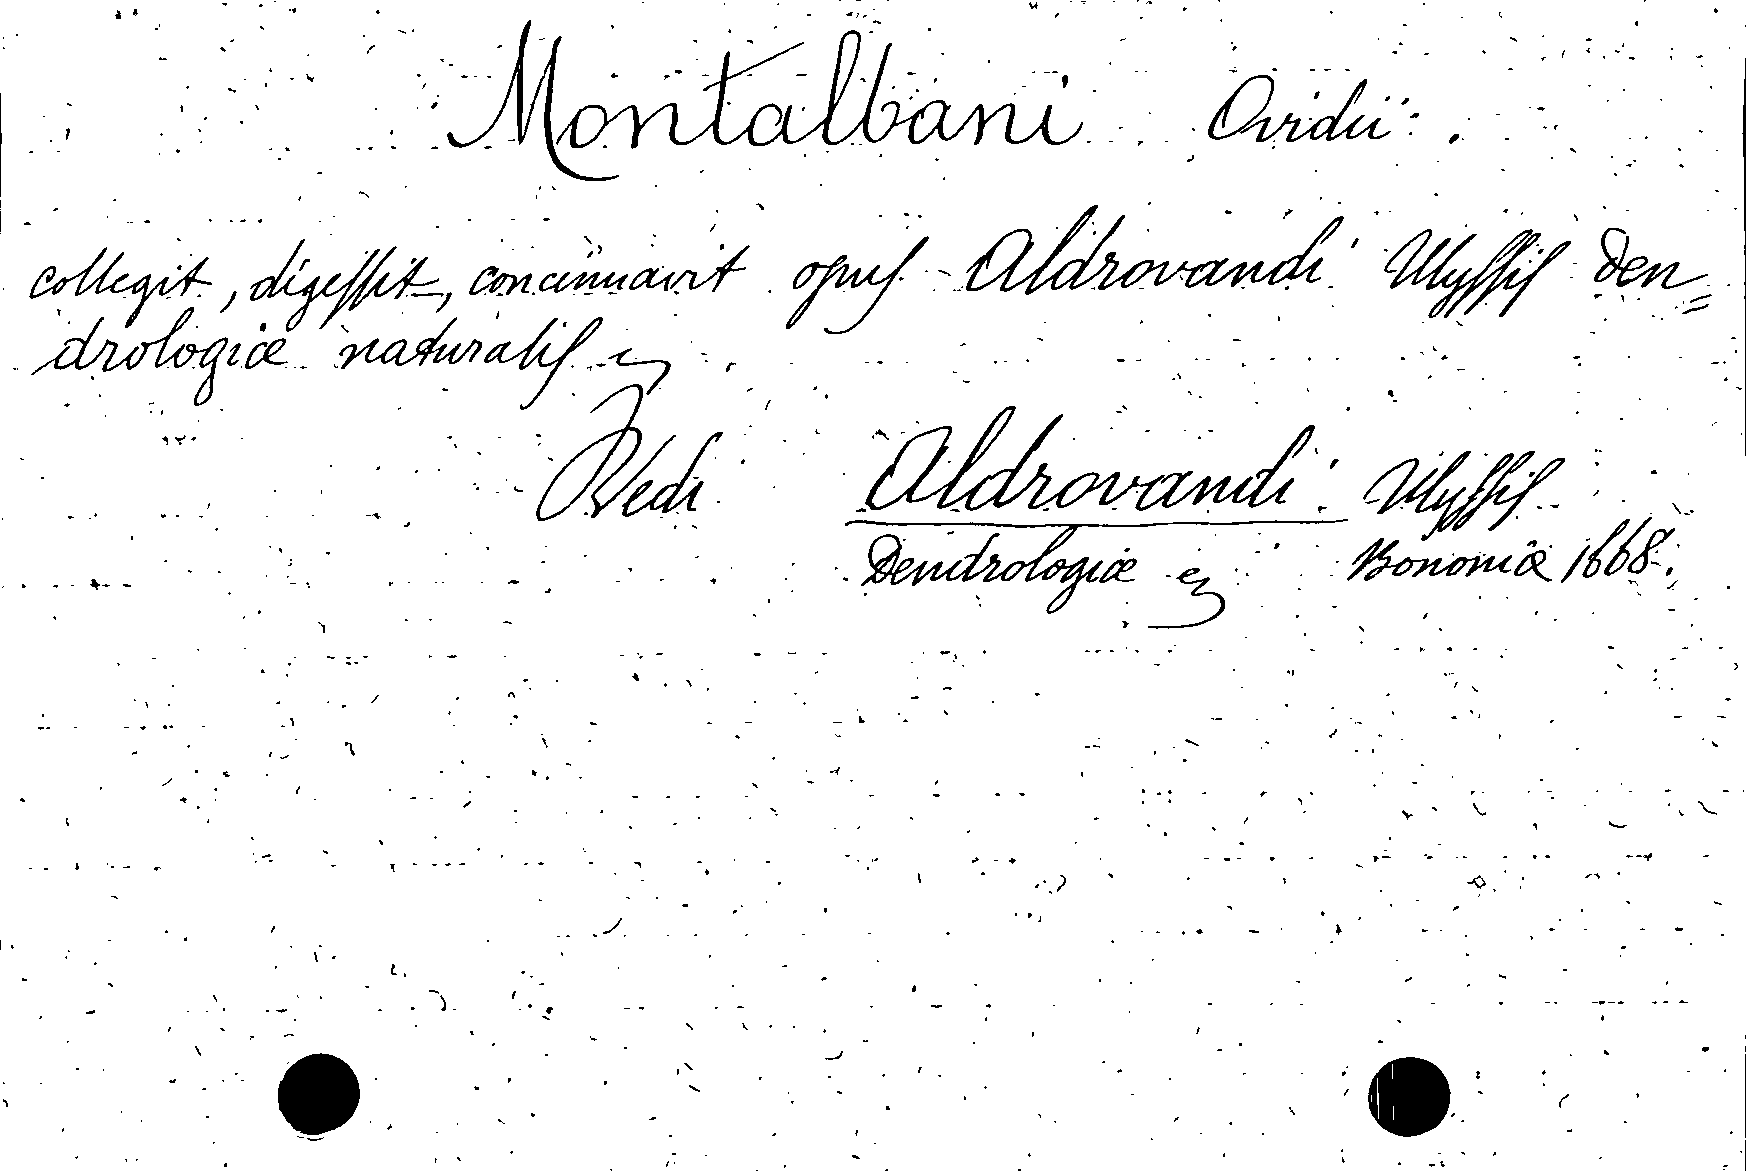 Montalbani Ovidii.
collegit, digessit, concinnavit opus Aldrovandi Ulyssis Den=
drologiæ naturalis
Vedi Aldrovandi Ulyssis
Dendrologiæ Bononiæ 1668.